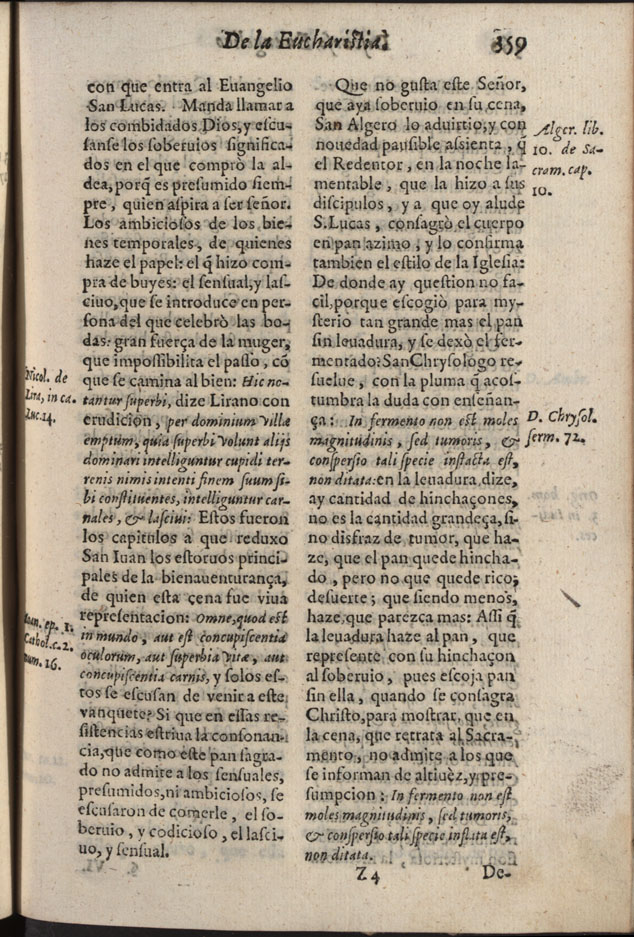 De la Eucharistia. 359
con que entra al Euangelio
San Lucas. Manda llamar a
los combidados Dios, y escu-
sanse los soberuios significa-
dos en el que comprò la al-
dea, porq̃ es presumido siem-
pre, quien aspira a ser señor.
Los ambiciosos de los bie-
nes temporales, de quienes
haze el papel: el q̃ hizo com-
pra de bueyes: el sensual, y las-
ciuo, que se introduce en per-
sona del que celebrò las bo-
das: gran fuerça de la muger,
que impossibilita el passo, cõ
que se camina al bien: Hic no-
tantur superbi, dize Lirano con
erudicion, per dominium villæ
emptum, quia superbi volunt alijs
dominari intelliguntur cupidi ter-
renis nimis intenti finem suum si-
bi constituentes, intelliguntur car-
nales, & lasciui: Estos fueron
los capitulos a que reduxo
San Iuan los estoruos princi-
pales de la bienauenturança,
de quien esta çena fue viua
representacion: Omne, quod est
in mundo, aut est concupiscentia
oculorum, aut superbia vitæ, aut
concupiscentia carnis, y solos es-
tos se escusan de venir a este
vanquete? Si que en essas re-
sistencias estriua la consonan-
cia, que como este pan sagra-
do no admite a los sensuales,
presumidos, ni ambiciosos, se
escusaron de comerle, el so-
beruio, y codicioso, el lasci-
uo, y sensual.
Nicol. de
Lira, in ca.
Luc. 14.
Ioan. ep. 1.
Cathol. c. 2.
num. 16.
Que no gusta este Señor,
que aya soberuio en su cena,
San Algero lo aduirtio, y con
nouedad pausible assienta, q̃
el Redentor, en la noche la-
mentable, que la hizo a sus
discipulos, y a que oy alude
S. Lucas, consagrò el cuerpo
en pan azimo, y lo confirma
tambien el estilo de la Iglesia:
De donde ay question no fa-
cil, porque escogiò para my-
sterio tan grande mas el pan
sin leuadura, y se dexò el fer-
mentado? San Chrysologo re-
suelue, con la pluma q̃ acos-
tumbra la duda con enseñan-
ça: In fermento non est moles
magnitudinis, sed tumoris, &
conspersio tali specie instacta est,
non ditata: en la leuadura, dize,
ay cantidad de hinchaçones,
no es la cantidad grandeça, si-
no disfraz de tumor, que ha-
ze, que el pan quede hincha-
do, pero no que quede rico;
desuerte; que siendo menos,
haze, que parezca mas: Assi q̃
la leuadura haze al pan, que
represente con su hinchaçon
al soberuio, pues escoja pan
sin ella, quando se consagra
Christo, para mostrar, que en
la cena, que retrata al Sacra-
mento, no admite a los que
se informan de altiuèz, y pre-
sumpcion: In fermento non est
moles magnitudinis, sed tumoris,
& conspersio tali specie inflata est,
non ditata.
Alger. lib.
10. de Sa-
cram. cap.
10.
D. Chrysol.
serm. 72.
Z 4 De-